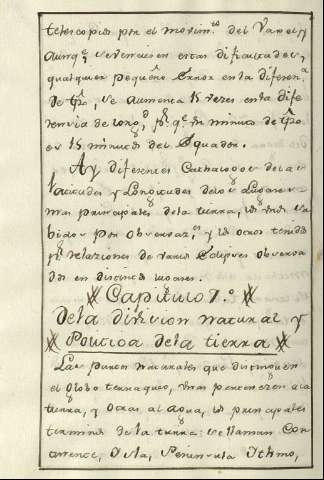 telescopios por el movim.to del Vaxel, y
aunq.e se venciesen estas dificultades,
qualquier pequeño Error en la diferen.a
de tpo, se aumenta 15 vezes en la dife
rencia de long.d, p.r q.e un minuto de tpo
es 15 minutos del Equador.
Ay diferentes Cathalogos de las
Latitudes y Longitudes de los Lugares
mas principales de la tierra, los unos sa
bidos por observaz.es, y los otros tenidos
p.r relaziones de varios Eclipses observa
dos en distintos lugares.
Capitulo 7.º
De la division natural y
Politica de la tierra
Las partes naturales que distinguen
el globo terraqueo, unas pertenezen a la
tierra, y otras al agua, los principales
terminos de la tierra se llaman Con
tinente, Isla, Peninsula Ithmo,